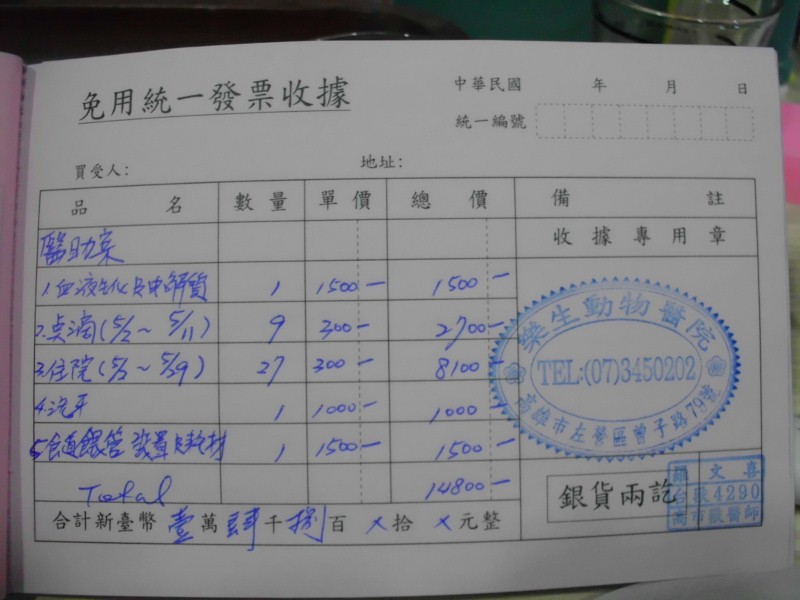 免用統一發票收據
中華民國 年 月 日
統一編號
買受人:
地址:
品 名 數量 單價 總 價 備 註
收據專用章
醫助案
1.血液生化與電解質 1 1500- 1500-
2.点滴(5/2~5/11) 9 300- 2700-
3.住院(5/2~5/29) 27 300- 8100-
4.洗牙 1 1000- 1000-
5.食道餵管裝置與耗材 1 1500- 1500-
Total 14800-
合計新臺幣 壹萬肆千捌百 X 拾 X 元整
樂生動物醫院
TEL:(07)3450202
高雄市左營區曾子路79號
銀貨兩訖
文喜
台獸4290
高市獸醫師